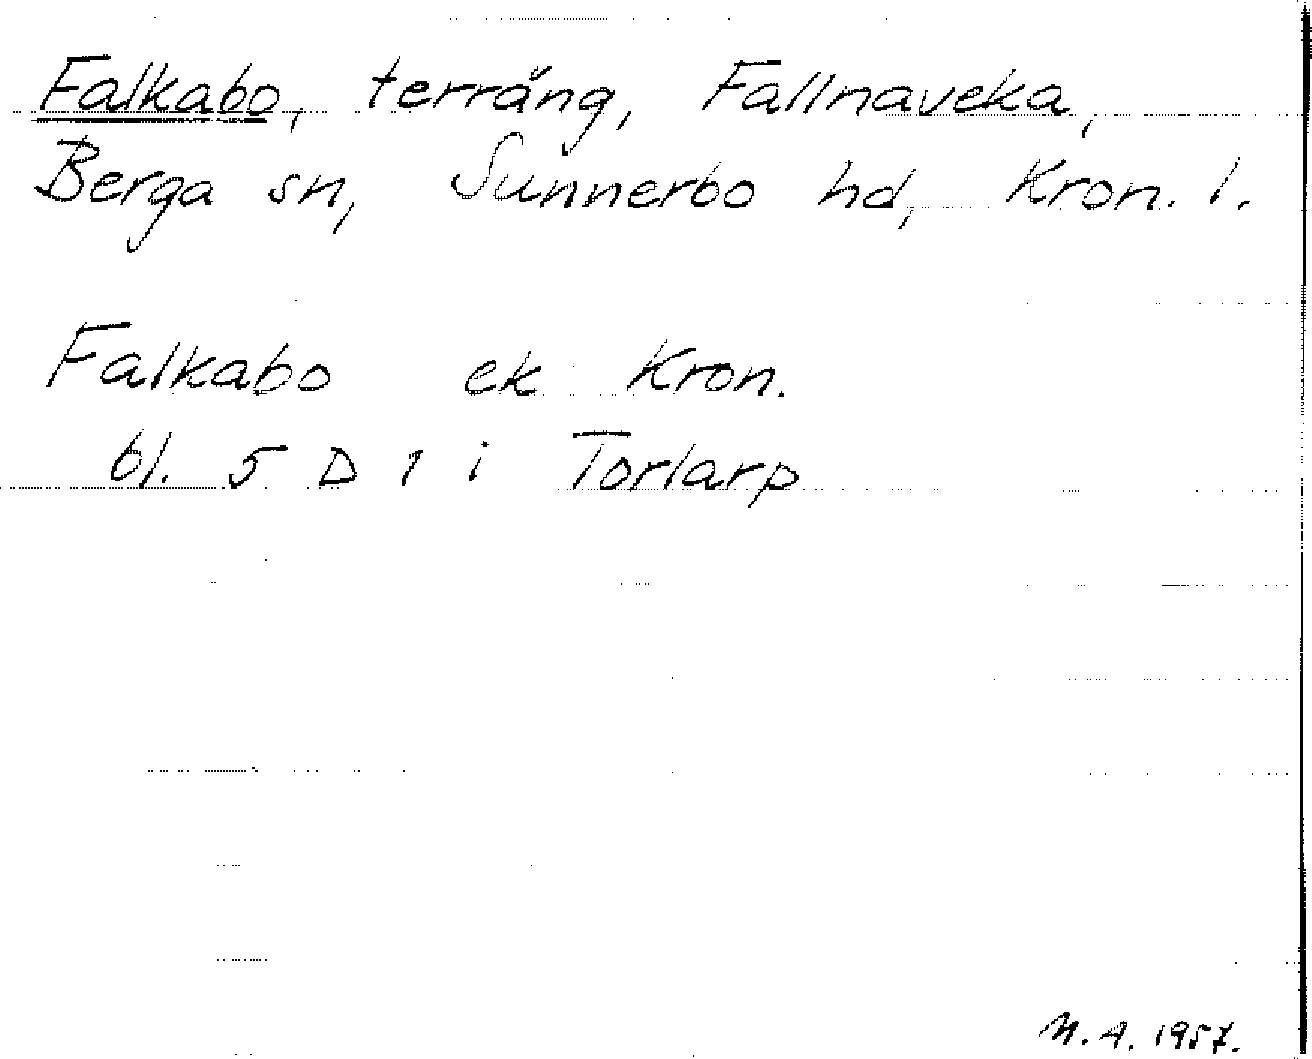 Falkabo, terräng, Fallnaveka,
Berga sn, Sunnerbo hd, Kron. l.
Falkabo ek Kron.
bl. 5 D 1 i Torlarp
N. A. 1957.